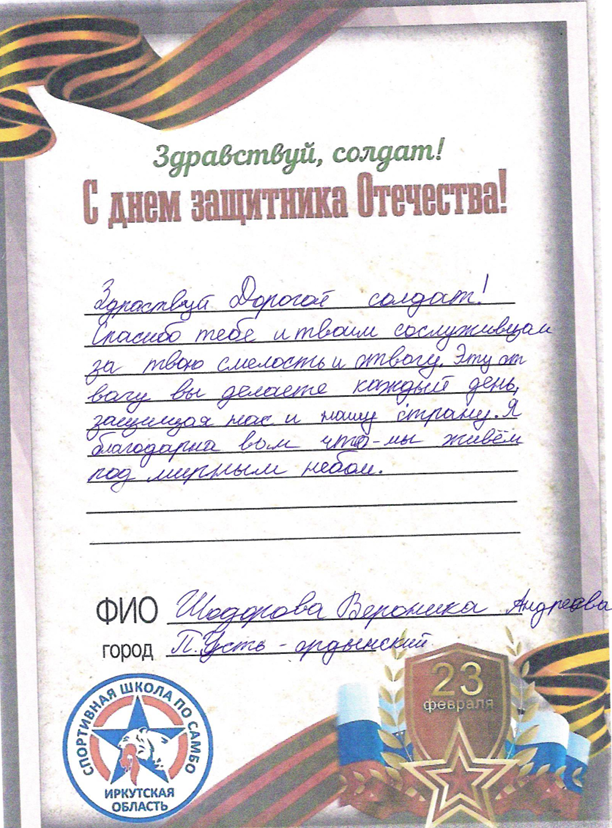 Здравствуй, солдат!
С днем защитника Отечества!
Здраствуй Дорогой солдат!
Спасибо тебе и твоим сослуживцам
за твою смелость и отвагу. Эту от
вагу вы делаете каждый день,
защищая нас и нашу страну. Я
благодарна вам что-мы живём
под мирным небом.
ФИО Шодорова Вероника Андреевна
город П. Усть - ордынский
23
февраля
СПОРТИВНАЯ ШКОЛА ПО САМБО
ИРКУТСКАЯ
ОБЛАСТЬ